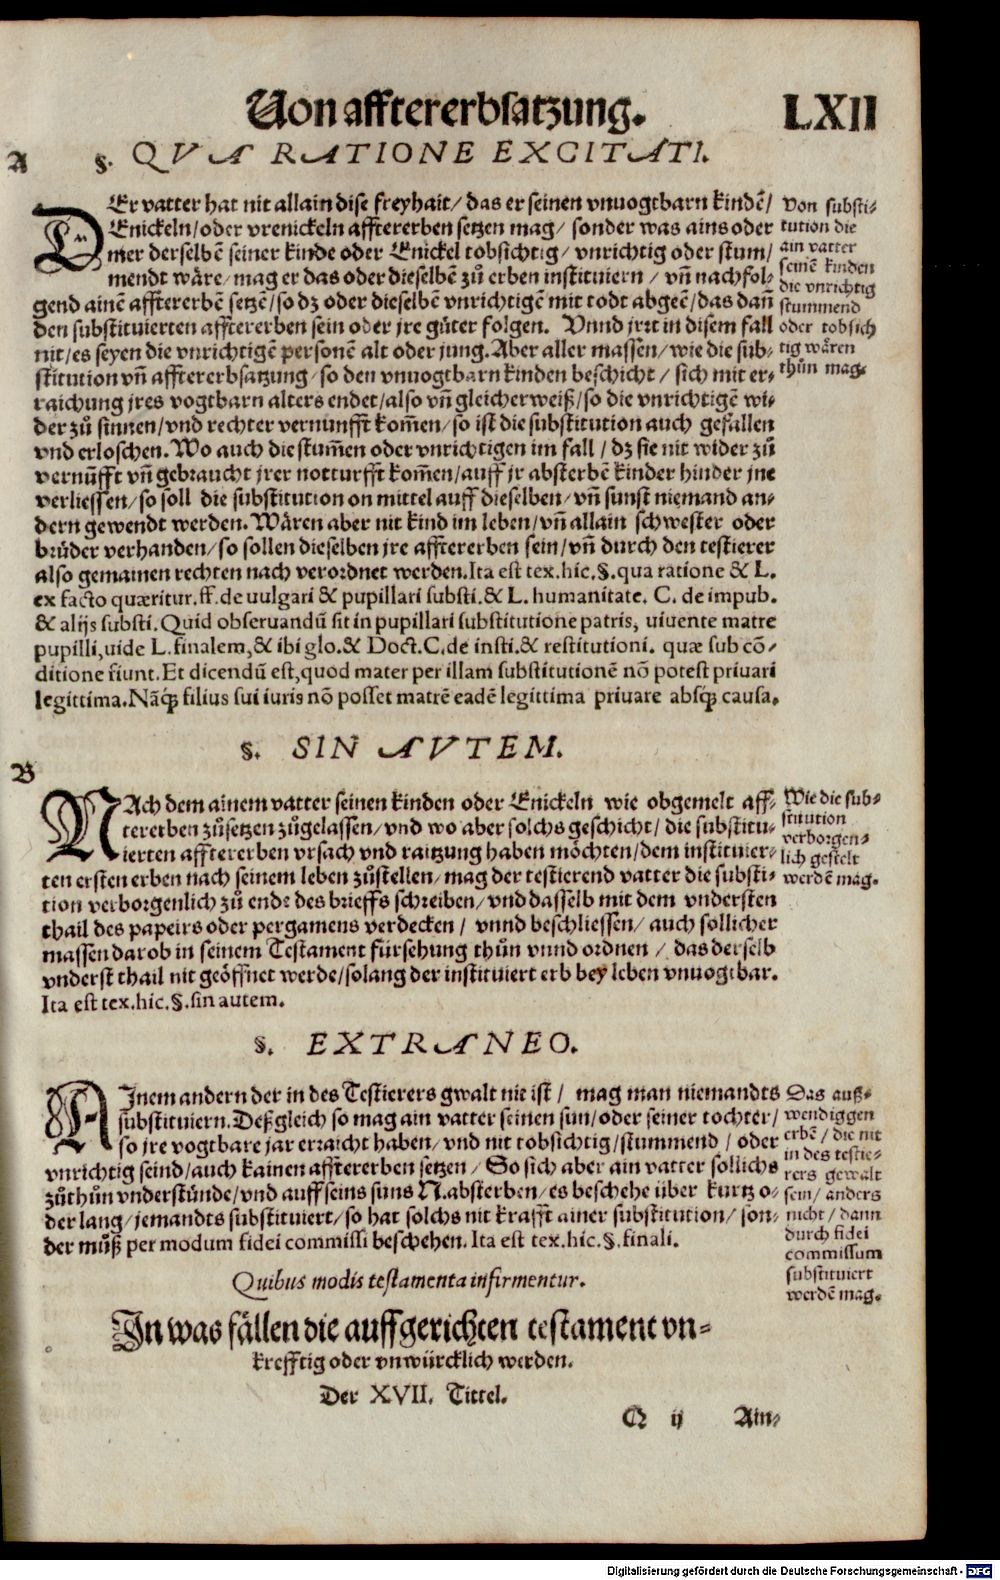 Von afftererbsatzung. LXII
A §. QVA RATIONE EXCITATI.
DEr vatter hat nit allain dise freyhait/ das er seinen vnuogtbarn kindē/
Enickeln/ oder vrenickeln afftererben setzen mag/ sonder was ains oder
mer derselbē seiner kinde oder Enickel tobsichtig/ vnrichtig oder stum/
mendt wäre/ mag er das oder dieselbē zů erben instituiern/ vñ nachfol-
gend ainē afftererbē setzē/ so dz oder dieselbē vnrichtigē mit todt abgeē/ das dañ
den substituierten afftererben sein oder jre gůter folgen. Vnnd jrrt in disem fall
nit/ es seyen die vnrichtigē personē alt oder jung. Aber aller massen/ wie die sub-
stitution vñ afftererbsatzung/ so den vnuogtbarn kinden beschicht/ sich mit er-
raichung jres vogtbarn alters endet/ also vñ gleicherweiß/ so die vnrichtigē wi-
der zů sinnen/ vnd rechter vernunfft kom̄en/ so ist die substitution auch gefallen
vnd erloschen. Wo auch die stum̄en oder vnrichtigen im fall/ dz sie nit wider zů
vernūfft vñ gebraucht jrer notturfft kom̄en/ auff jr absterbē kinder hinder jne
verliessen/ so soll die substitution on mittel auff dieselben/ vñ sunst niemand an-
dern gewendt werden. Wären aber nit kind im leben/ vñ allain schwester oder
brüder verhanden/ so sollen dieselben jre afftererben sein/ vñ durch den testierer
also gemainen rechten nach verordnet werden. Ita est tex. hic. §. qua ratione & L.
ex facto quæritur. ff. de uulgari & pupillari substi. & L. humanitate. C. de impub.
& alijs substi. Quid obseruandū sit in pupillari substitutione patris, uiuente matre
pupilli, uide L. finalem, & ibi glo. & Doct. C. de insti. & restitutioni. quæ sub cō-
ditione fiunt. Et dicendū est, quod mater per illam substitutionē nō potest priuari
legittima. Nāq́ filius sui iuris nō posset matrē eadē legittima priuare absq́ causa.
Von substi-
tution die
ain vatter
seinē kinden
die vnrichtig
stummend
oder tobsich
tig wären
thůn mag.
§. SIN AVTEM.
B
NAch dem ainem vatter seinen kinden oder Enickeln wie obgemelt aff-
tererben zůsetzen zůgelassen/ vnd wo aber solchs geschicht/ die substitu-
ierten afftererben vrsach vnd raitzung haben möchten/ dem instituier-
ten ersten erben nach seinem leben zůstellen/ mag der testierend vatter die substi-
tion verborgenlich zů ende des brieffs schreiben/ vnd dasselb mit dem vndersten
thail des papeirs oder pergamens verdecken/ vnnd beschliessen/ auch sollicher
massen darob in seinem Testament fürsehung thůn vnnd ordnen/ das derselb
vnderst thail nit geöffnet werde/ solang der instituiert erb bey leben vnuogtbar.
Ita est tex. hic. §. sin autem.
Wie die sub-
stitution
verborgen-
lich gestelt
werdē mag.
§. EXTRANEO.
AInem andern der in des Testierers gwalt nie ist/ mag man niemandts
substituiern. Deßgleich so mag ain vatter seinen sun/ oder seiner tochter/
so jre vogtbare jar erraicht haben/ vnd nit tobsichtig/ stummend/ oder
vnrichtig seind/ auch kainen afftererben setzen/ So sich aber ain vatter sollichs
zůthůn vnderstünde/ vnd auff seins suns N. absterben/ es beschehe über kurtz o-
der lang/ jemandts substituiert/ so hat solchs nit krafft ainer substitution/ son-
der můß per modum fidei commissi beschehen. Ita est tex. hic. §. finali.
Das auß-
wendiggen
erbē/ die nit
in des testie-
rers gewalt
sein/ anders
nicht/ dann
durch fidei
commissum
substituiert
werdē mag.
Quibus modis testamenta infirmentur.
In was fällen die auffgerichten testament vn-
krefftig oder vnwürcklich werden.
Der XVII. Tittel.
Q ij Ain-
Digitalisierung gefördert durch die Deutsche Forschungsgemeinschaft - DFG